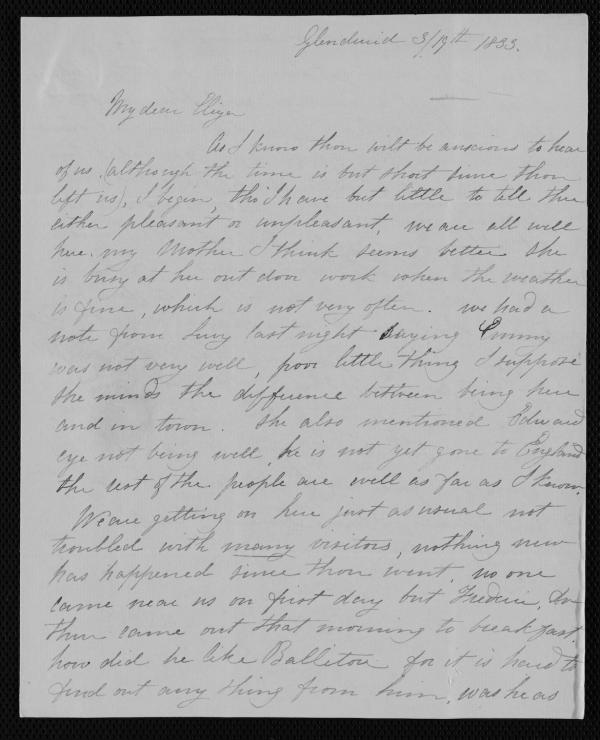 Glendruid 3/19th 1833.
My dear Eliza
As I know thou wilt be anxious to hear
of us (although the time is but short since thou
left us), I begin, tho' I have but little to tell thee
either pleasant or unpleasant, we are all well
here. my Mother I think seems better she
is busy at her out door work when the weather
is fine, which is not very often. we had a
note from Lucy last night saying Emmy
was not very well, poor little thing I suppose
she minds the difference between being here
and in town. She also mentioned Edward
eye not being well, he is not yet gone to England
the rest of the people are well as far as I know.
We are getting on here just as usual not
troubled with many visitors, nothing new
has happened since thou went, no one
came near us on first day but Frederic,
then came out that morning to breakfast,
how did he like Ballitore for it is hard to
find out any thing from him, was he as